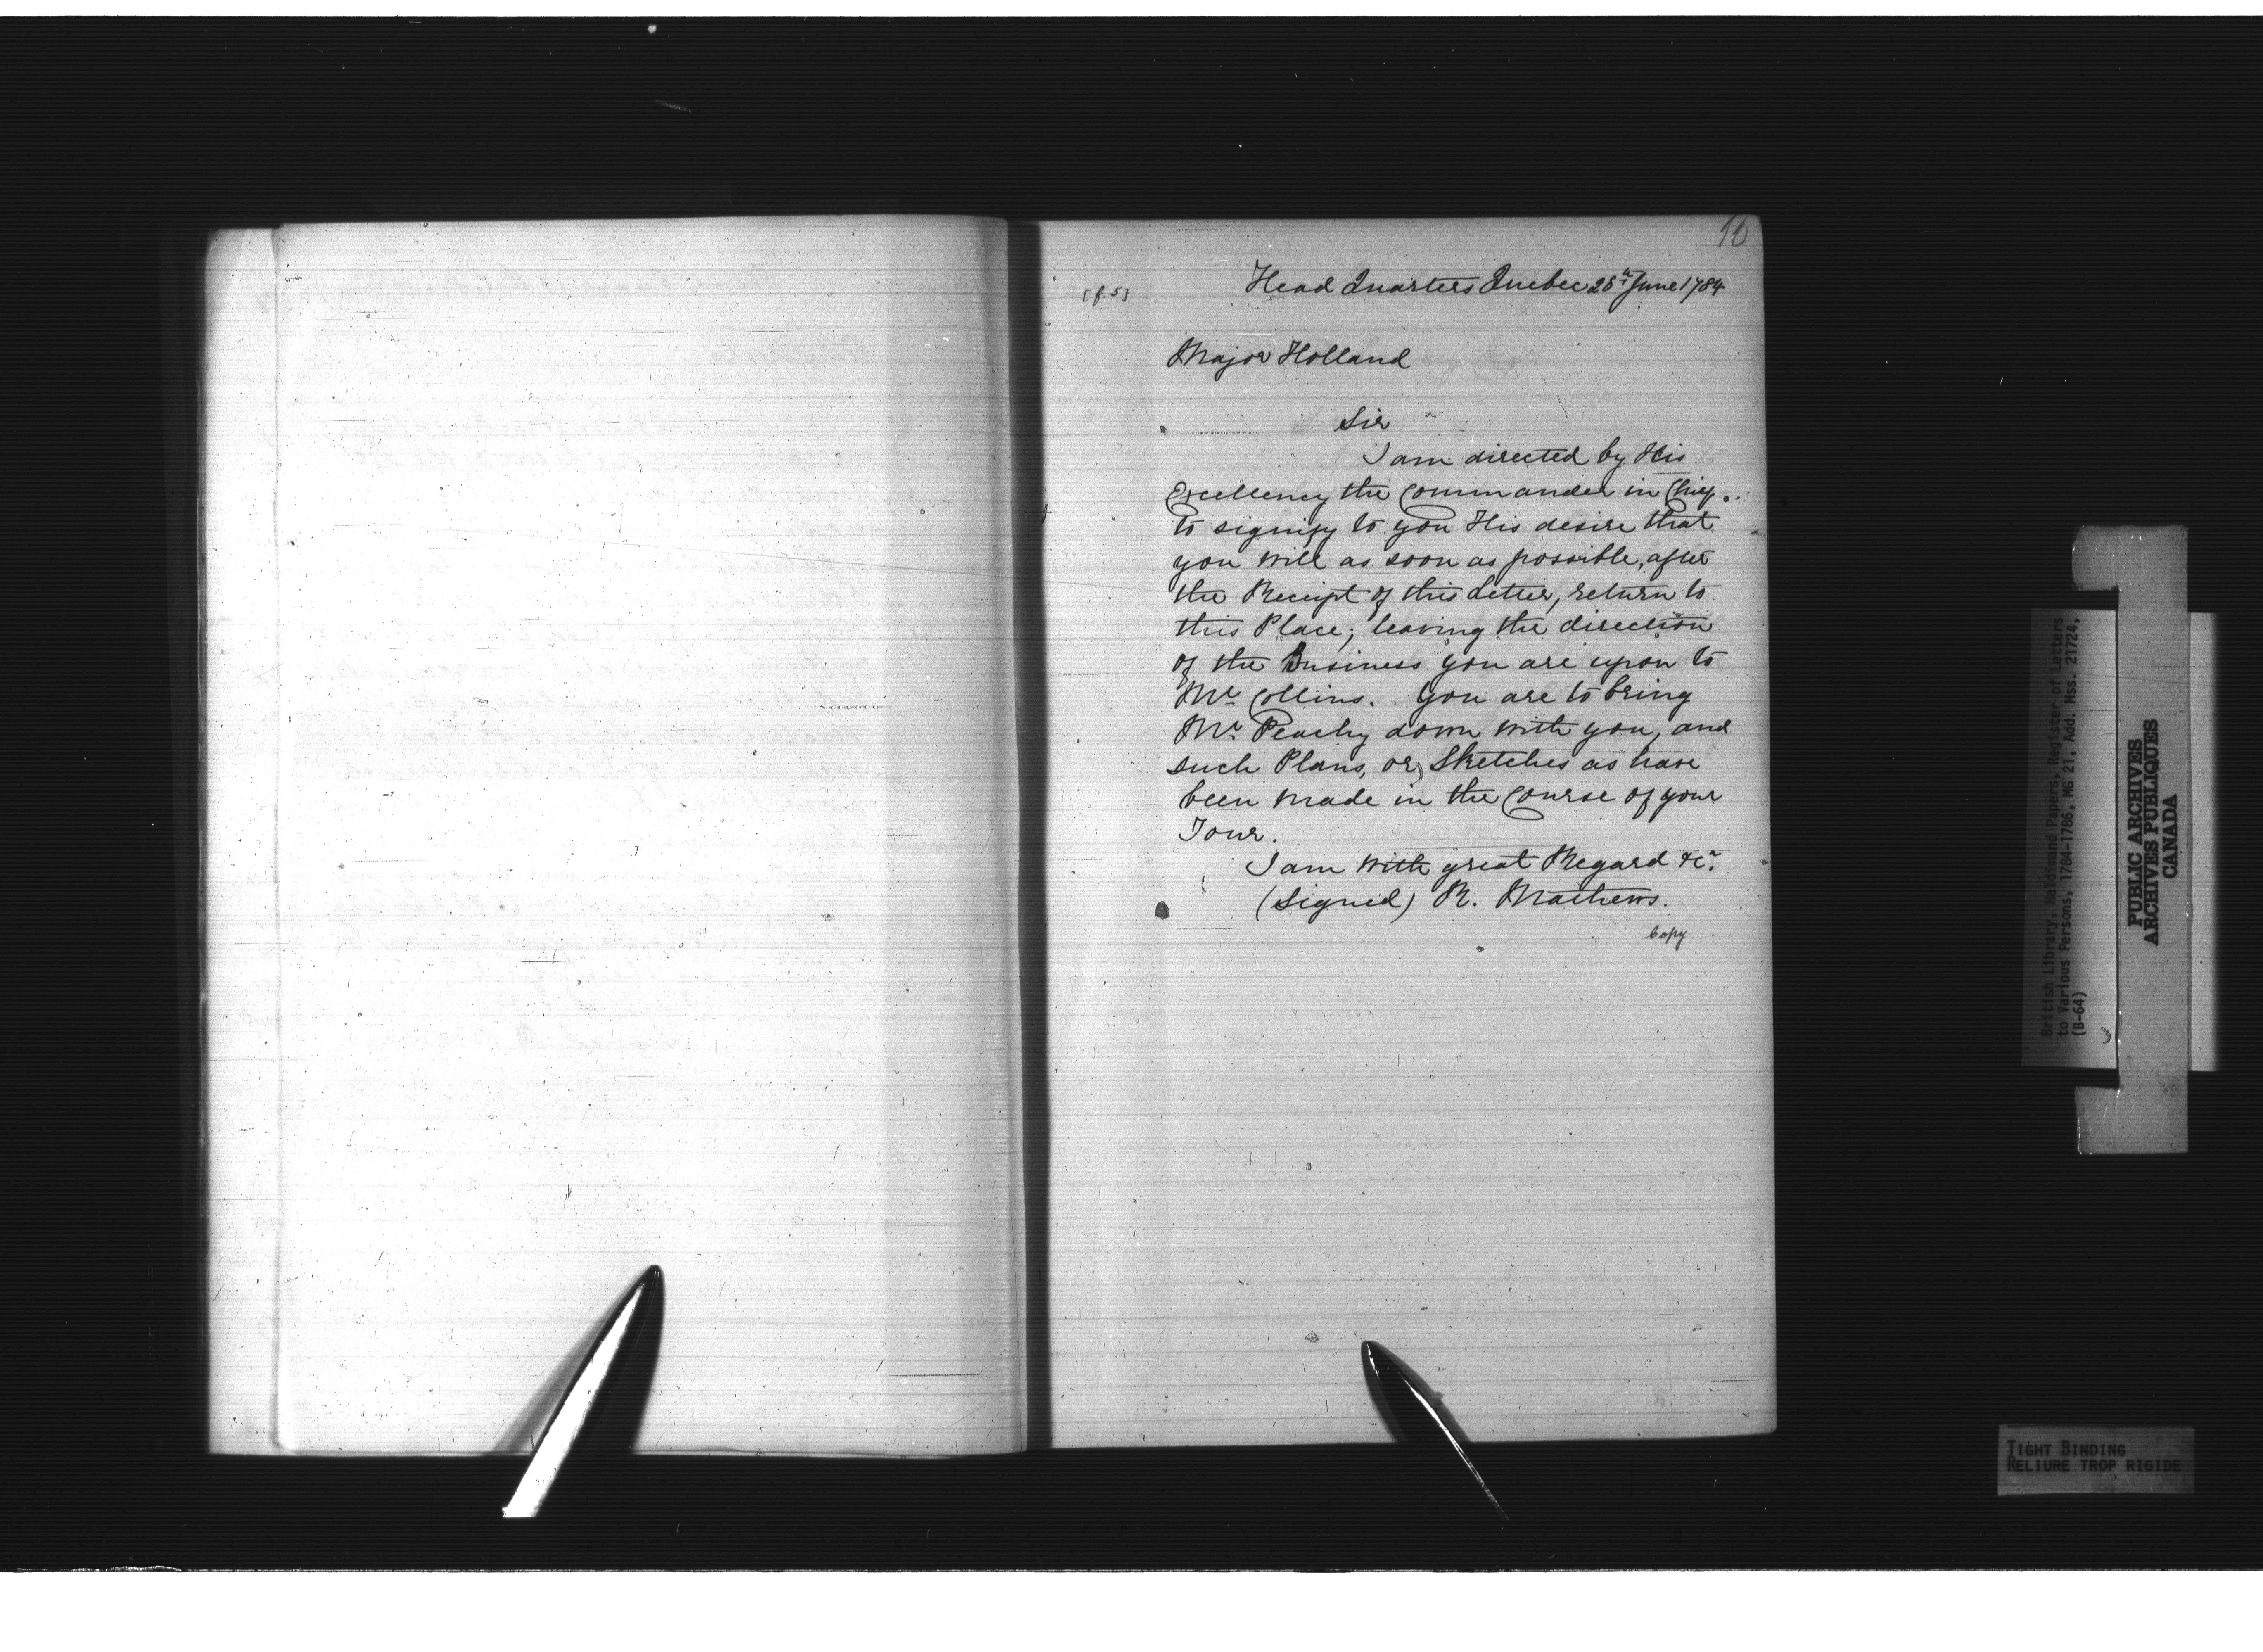 10
[f.5]
Head Quarters Quebec 28th June 1784
Major Holland
Sir
I am directed by His
Excellency the Commander in Chief.
to signify to you His desire that
you will as soon as possible, after
the Receipt of this Letter, return to
this Place; leaving the direction
of the Business you are upon to
Mr Collins. You are to bring
Mr Peachy down with you, and
such Plans, or Sketches as have
been made in the Course of your
Tour.
I am with great Regard &ca
(Signed) R. Mathews.
Copy
British Library, Haldimand Papers, Register of Letters
to Various Persons, 1784-1786, MG 21, Add. Mss. 21724,
(B-64)
PUBLIC ARCHIVES
ARCHIVES PUBLIQUES
CANADA
TIGHT BINDING
RELIURE TROP RIGIDE